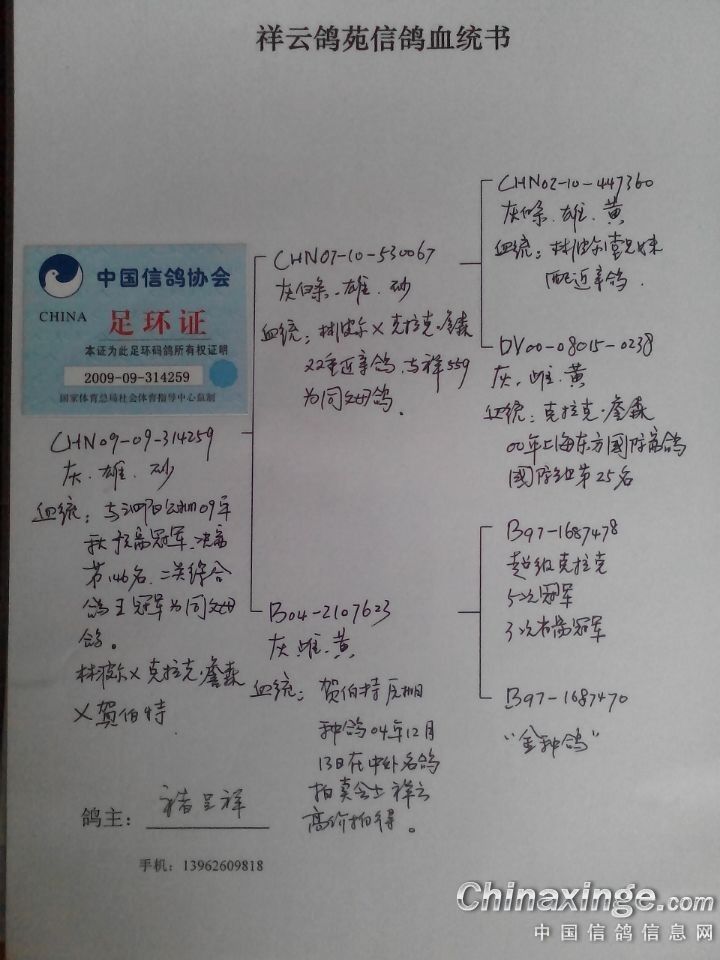 祥云鸽苑信鸽血统书
中国信鸽协会
CHINA
足环证
本证为此足环码鸽所有权证明
2009-09-314259
国家体育总局社会体育指导中心监制
CHN09-09-314259
灰.雄.砂
血统：与 09年
秋 冠军.决赛
第146名.二关综合
鸽王冠军为同父母
鸽。
林波尔×克拉克·詹森
×贺伯特
CHN07-10-530067
灰白条.雄.砂
血统：林波尔×克拉克.詹森
双重近亲鸽.与祥559
为同父母鸽.
B04-2107623
灰.雌.黄
血统：贺伯特
种鸽04年12月
13日在中外名鸽
拍卖会上祥云
高价拍得。
CHN02-10-447360
灰条.雄.黄
血统：林波尔 兄妹
配近亲鸽.
DV00-08015-0238
灰.雌.黄
血统：克拉克.詹森
00年上海东方国际赛鸽
国际组第25名
B97-1687478
超级克拉克
5次冠军
3次省赛冠军
B97-1687470
“金种鸽”
鸽主：褚呈祥
手机：13962609818
Chinaxinge.com
中国信鸽信息网